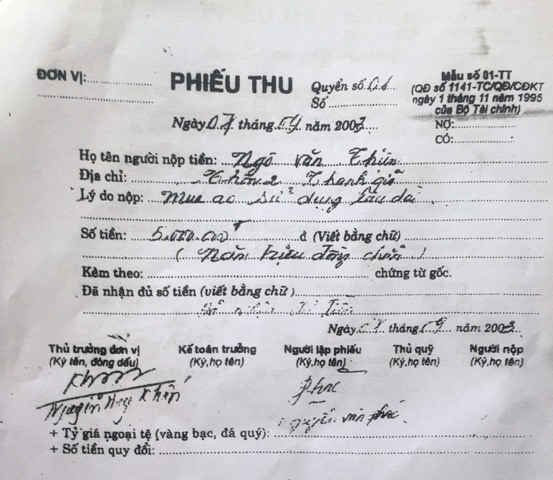 ĐƠN VỊ:
PHIẾU THU
Quyển số
Số
Mẫu số 01-TT
(QĐ số 1141-TC/QĐ/CĐKT
ngày 1 tháng 11 năm 1995
của Bộ Tài chính)
NỢ:
CÓ:
Ngày 07 tháng 09 năm 2003
Họ tên người nộp tiền: Ngô văn
Địa chỉ: Thôn 2 Thanh
Lý do nộp: Mua ao sử dụng lâu dài
Số tiền: 5.000.000đ đ (Viết bằng chữ)
(Năm triệu đồng chẵn)
Kèm theo: chứng từ gốc.
Đã nhận đủ số tiền (viết bằng chữ)
Ngày tháng 09 năm 2003
Thủ trưởng đơn vị
(Ký tên, đóng dấu)
Kế toán trưởng
(Ký,họ tên)
Người lập phiếu
(Ký,họ tên)
Thủ quỹ
(Ký,họ tên)
Người nộp
(Ký,họ tên)
Nguyễn Khiên
Nguyễn văn phúc
+ Tỷ giá ngoại tệ (vàng bạc, đá quý):
+ Số tiền quy đổi: